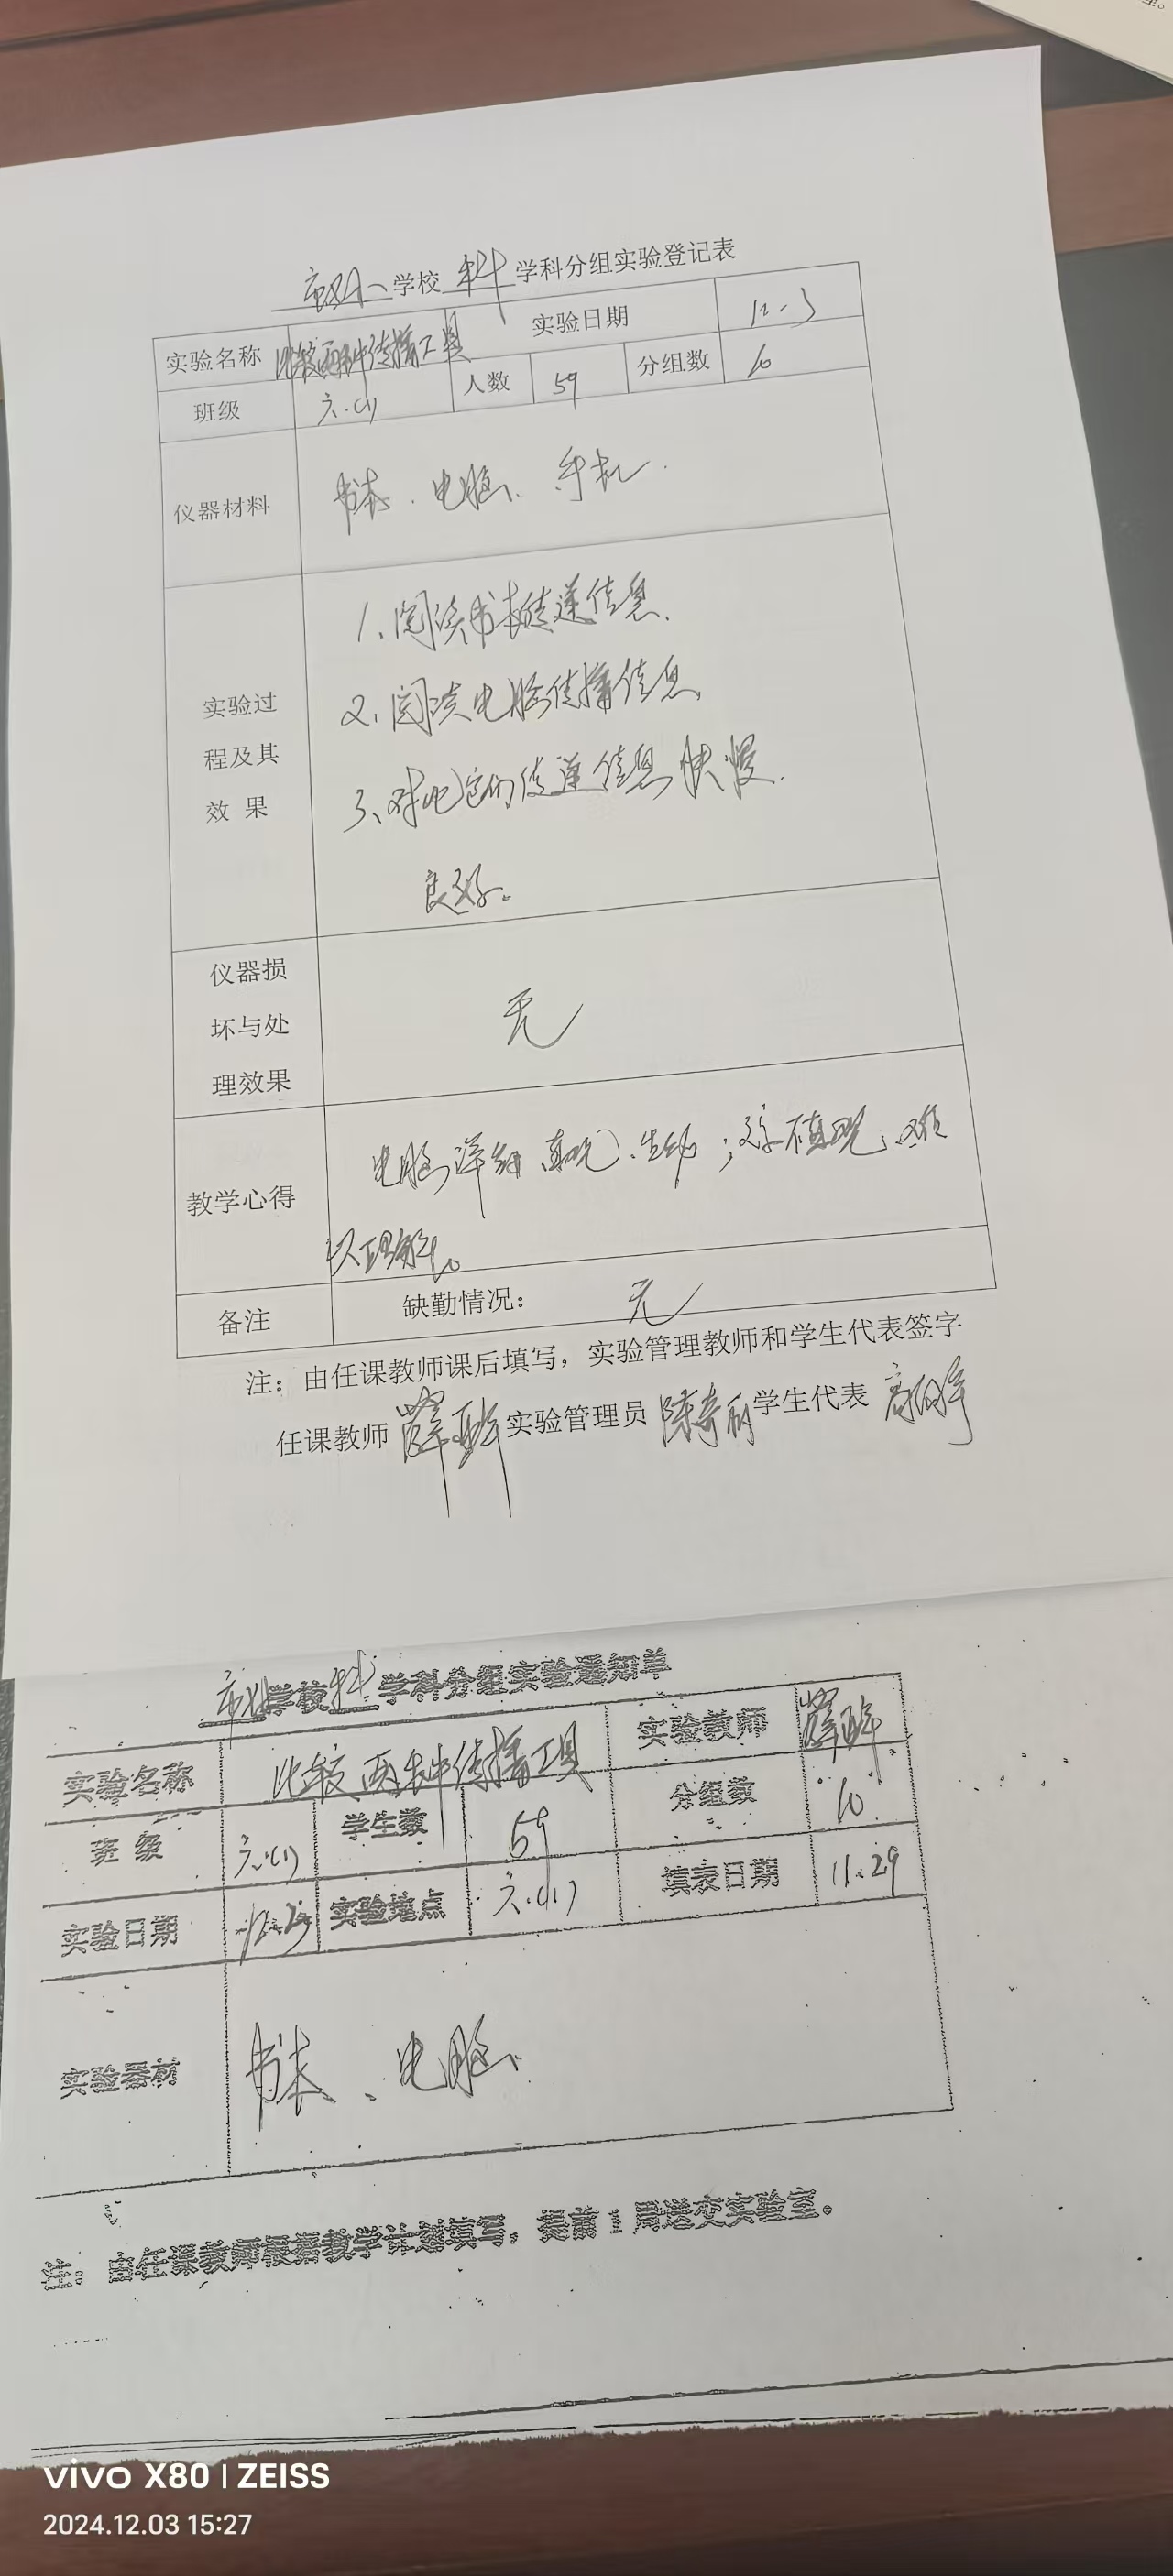 学校 科 学科分组实验登记表
实验名称 比较两种传播工具 实验日期 12.3
班级 六.(1) 人数 59 分组数 10
仪器材料 书本、电脑、手机.
实验过程及其效果
1、阅读书本传递信息、
2、阅读电脑传播信息、
3、对比它们传递信息快慢.
良好。
仪器损坏与处理效果 无
教学心得 电脑详细、直观、生动;文字不直观、难
以理解。
备注 缺勤情况: 无
注:由任课教师课后填写,实验管理教师和学生代表签字
任课教师 薛 实验管理员 陈 学生代表 高
学校 科 学科分组实验通知单
实验名称 比较两种传播工具 实验教师 薛
班 级 六.(1) 学生数 59 分组数 10
实验日期 实验地点 六.(1) 填表日期 11.29
实验器材 书本、电脑、
注:由任课教师根据教学计划填写,提前1周送交实验室。
vivo X80 | ZEISS
2024.12.03 15:27